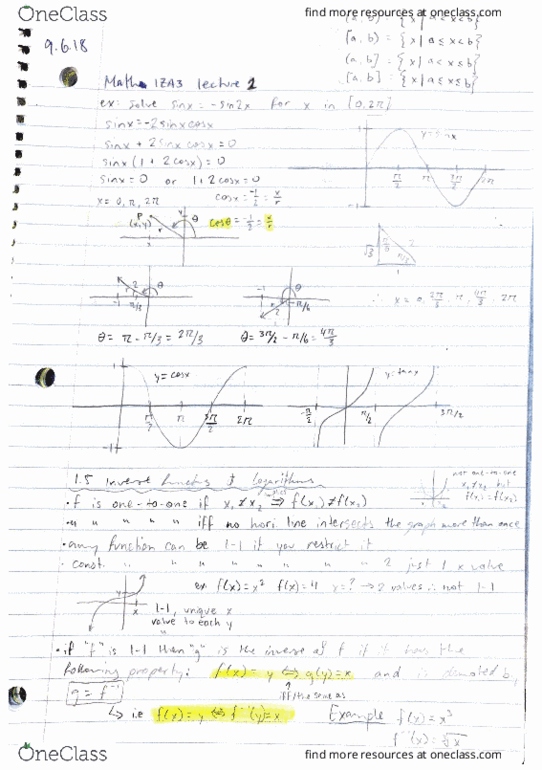 OneClass
find more resources at oneclass.com
9.6.18
(a, b) = { x | a < x < b}
[a, b) = { x | a ≤ x < b}
(a, b] = { x | a < x ≤ b}
[a, b] = { x | a ≤ x ≤ b}
Maths 1ZA3 lecture 2
ex: Solve sinx = -sin2x for x in [0,2π]
sinx = -2sinxcosx
sinx + 2sinxcosx = 0
sinx (1 + 2cosx) = 0
sinx = 0 or 1 + 2cosx = 0
x = 0, π, 2π
cosx = -1/2 = x/r
1
y = sinx
π/2 π 3π/2 2π
-1
P
(x,y)
r
y
θ
x
cosθ = -1/2 = x/r
√3
2
π/6
π/3
1
-1
2
π/3
θ
-1
2
π/6
θ
∴ x = 0, 2π/3, π, 4π/3, 2π
θ = π - π/3 = 2π/3
θ = 3π/2 - π/6 = 4π/3
1
y = cosx
π/2 π 3π/2 2π
-1
y = tanx
-π/2 π/2 3π/2
1.5 Inverse functns & logarithms
not one-to-one
x₁ ≠ x₂ but
f(x₁) = f(x₂)
• f is one-to-one if x₁ ≠ x₂ ⇒ f(x₁) ≠ f(x₂)
• " " " " " iff no hori line intersects the graph more than once
• any function can be 1-1 if you restrict it
• const. " " " " " " " 2 just 1 x value
ex f(x) = x² f(x) = 4 y = ? → 2 values ∴ not 1-1
y
x
1-1, unique x
value to each y
• if "f" is 1-1 than "g" is the inverse of f if it has the
following property: f(x) = y ⇔ g(y) = x and is denoted by
iff/the same as
g = f⁻¹
↳ i.e f(x) = y ⇔ f⁻¹(y) = x
Example f(x) = x³
f⁻¹(x) = ∛x
OneClass
find more resources at oneclass.com